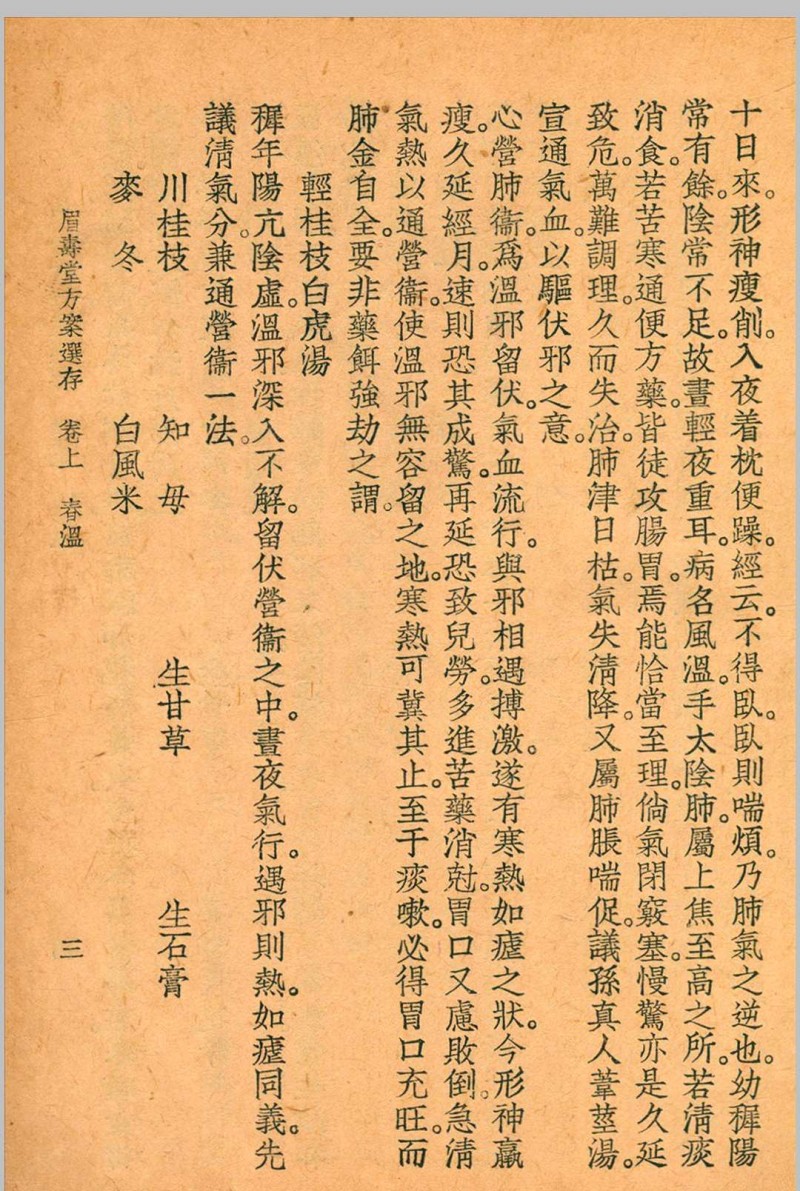 十日來。形神瘦削。入夜着枕便躁。經云。不得臥。臥則喘煩。乃肺氣之逆也。幼穉陽
常有餘。陰常不足。故晝輕夜重耳。病名風溫。手太陰肺。屬上焦至高之所。若淸痰
消食。若苦寒通便方藥。皆徒攻腸胃。焉能恰當至理。倘氣閉竅塞。慢驚亦是久延
致危。萬難調理。久而失治。肺津日枯。氣失淸降。又屬肺脹喘促。議孫真人葦莖湯。
宣通氣血。以驅伏邪之意。
心營肺衞。爲溫邪留伏。氣血流行。與邪相遇搏激。遂有寒熱如瘧之狀。今形神羸
瘦。久延經月。速則恐其成驚。再延恐致兒勞。多進苦藥消尅。胃口又慮敗倒。急淸
氣熱以通營衞。使溫邪無容留之地。寒熱可冀其止。至于痰嗽。必得胃口充旺。而
肺金自全。要非藥餌強劫之謂。
輕桂枝白虎湯
穉年陽亢陰虛。溫邪深入不解。留伏營衞之中。晝夜氣行。遇邪則熱。如瘧同義。先
議淸氣分。兼通營衞一法。
川桂枝　知　母　生甘草　生石膏
麥　冬　白風米
眉壽堂方案選存　卷上　春溫　三